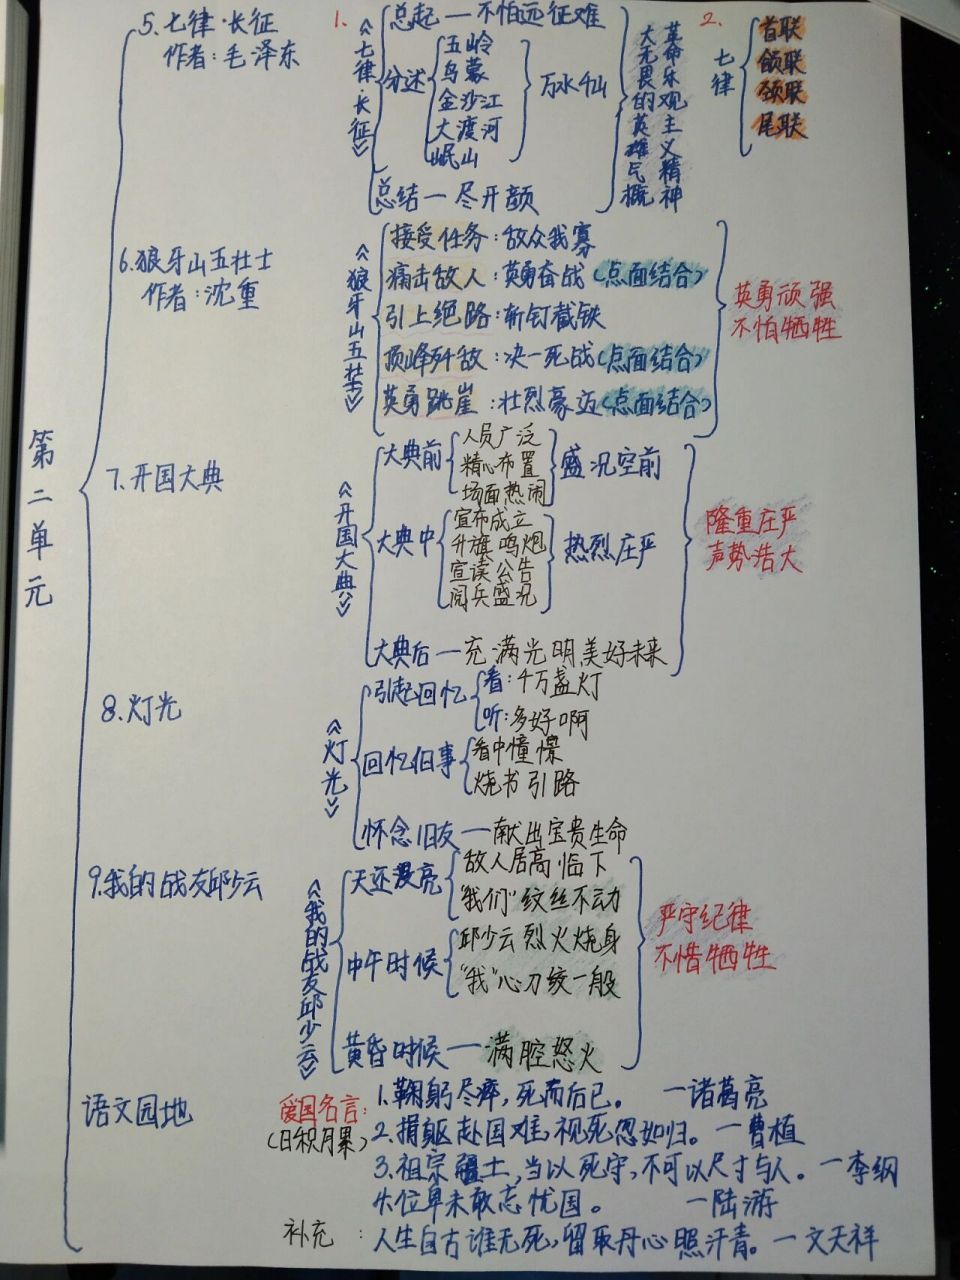 第二单元
5.七律·长征
作者:毛泽东
1.
《七律·长征》
总起—不怕远征难
分述
五岭
乌蒙
金沙江
大渡河
岷山
万水千山
总结—尽开颜
大无畏的英雄气概
革命乐观主义精神
2.
七律
首联
颔联
颈联
尾联
6.狼牙山五壮士
作者:沈重
《狼牙山五壮士》
接受任务:敌众我寡
痛击敌人:英勇奋战(点面结合)
引上绝路:斩钉截铁
顶峰歼敌:决一死战(点面结合)
英勇跳崖:壮烈豪迈(点面结合)
英勇顽强
不怕牺牲
7.开国大典
《开国大典》
大典前
人员广泛
精心布置
场面热闹
盛况空前
大典中
宣布成立
升旗鸣炮
宣读公告
阅兵盛况
热烈庄严
大典后—充满光明美好未来
隆重庄严
声势浩大
8.灯光
《灯光》
引起回忆
看:千万盏灯
听:多好啊
回忆旧事
看中憧憬
烧书引路
怀念旧友—献出宝贵生命
9.我的战友邱少云
《我的战友邱少云》
天还没亮
敌人居高临下
"我们"纹丝不动
中午时候
邱少云烈火烧身
"我"心刀绞一般
黄昏时候—满腔怒火
严守纪律
不惜牺牲
语文园地
爱国名言:
(日积月累)
1.鞠躬尽瘁,死而后已。 —诸葛亮
2.捐躯赴国难,视死忽如归。—曹植
3.祖宗疆土,当以死守,不可以尺寸与人。—李纲
4.位卑未敢忘忧国。 —陆游
补充:人生自古谁无死,留取丹心照汗青。—文天祥